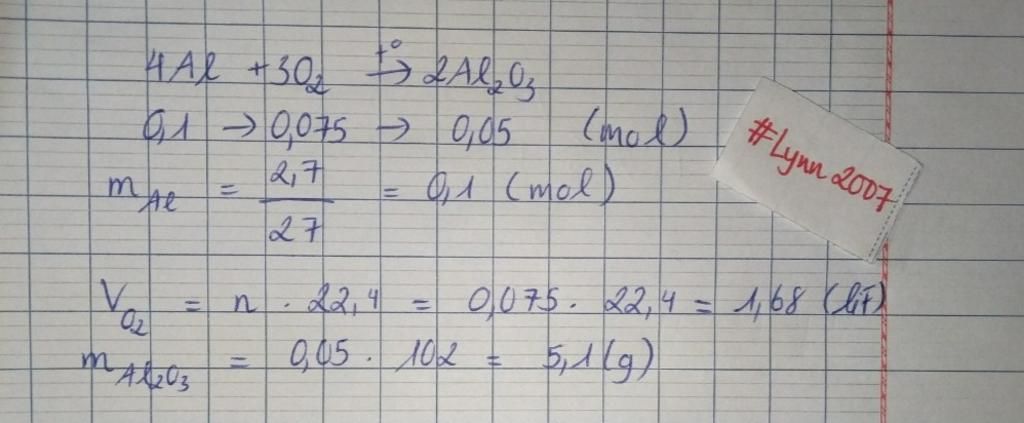 4Al + 3O₂ t°→ 2Al₂O₃
0,1 → 0,075 → 0,05 (mol)
m Al = 2,7 / 27 = 0,1 (mol)
V O₂ = n . 22,4 = 0,075 . 22,4 = 1,68 (lít)
m Al₂O₃ = 0,05 . 102 = 5,1 (g)
#Lynn2007